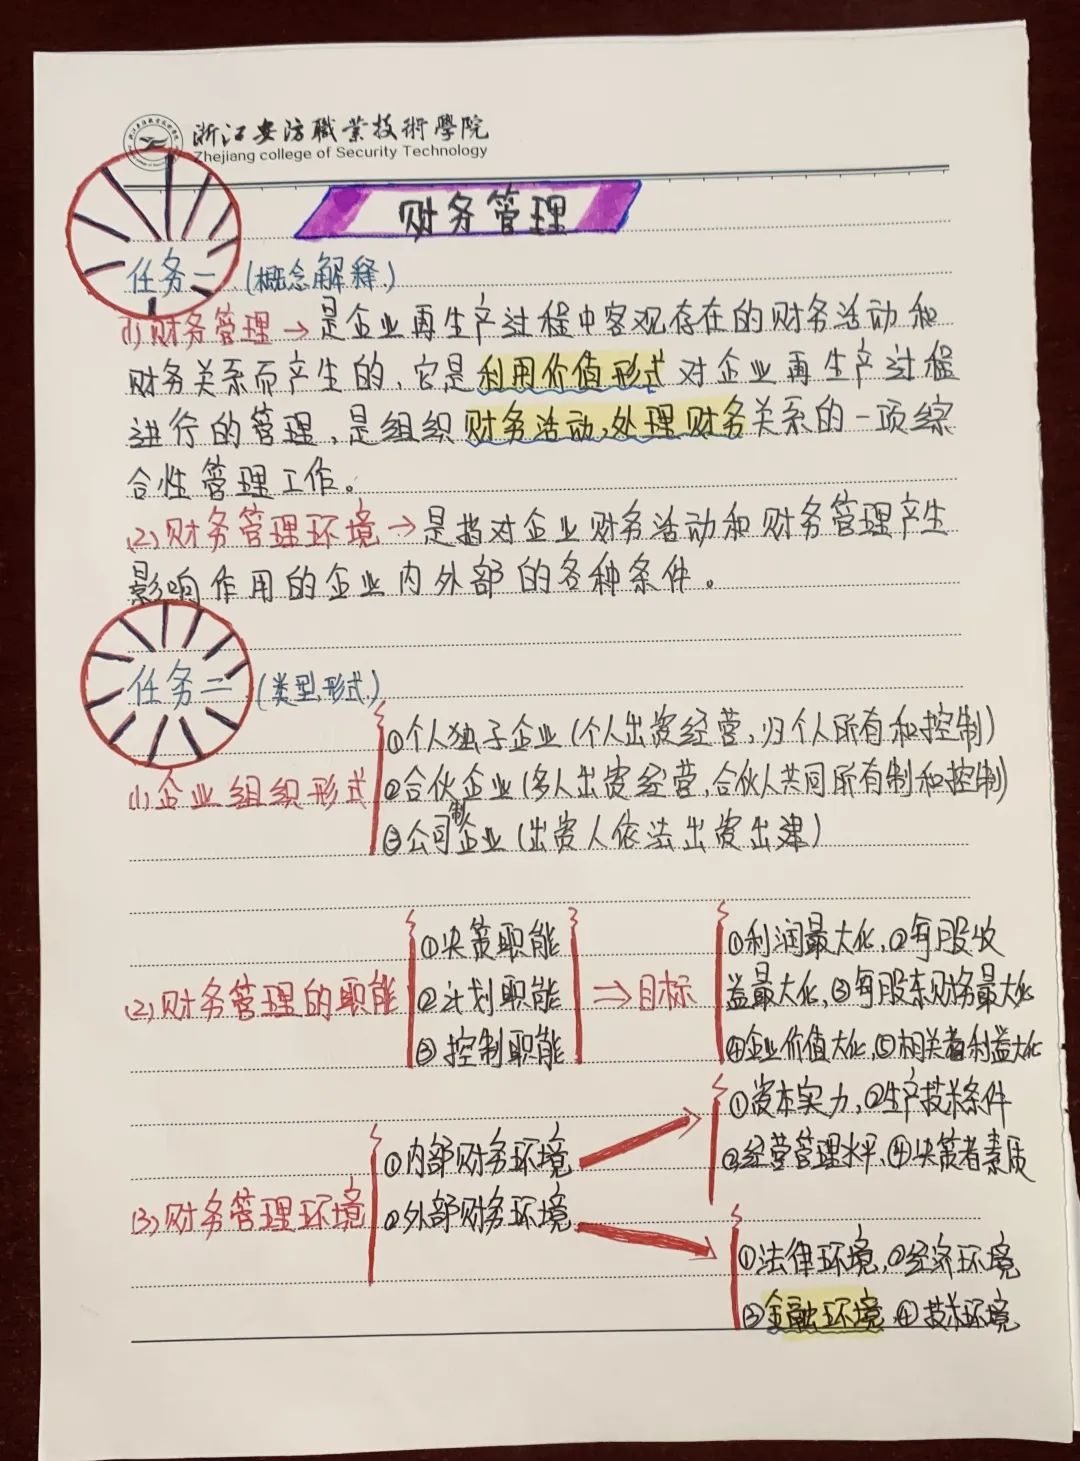 浙江安防職業技術學院
Zhejiang college of Security Technology
财务管理
任务一 (概念解释)
(1)财务管理→是企业再生产过程中客观存在的财务活动和
财务关系而产生的、它是利用价值形式对企业再生产过程
进行的管理,是组织财务活动,处理财务关系的一项综
合性管理工作。
(2)财务管理环境→是指对企业财务活动和财务管理产生
影响作用的企业内外部的各种条件。
任务二 (类型、形式)
(1)企业组织形式
①个人独子企业(个人出资经营,归个人所有和控制)
②合伙企业(多人出资经营,合伙人共同所有制和控制)
③公司制企业(出资人依法出资出建)
(2)财务管理的职能
①决策职能
②计划职能
③控制职能
⇒目标
①利润最大化,②每股收
益最大化,③每股东财务最大化
④企业价值大化,⑤相关者利益大化
(3)财务管理环境
①内部财务环境
①资本实力,②生产技术条件
③经营管理水平、④决策者素质
②外部财务环境
①法律环境,②经济环境
③金融环境、④技术环境